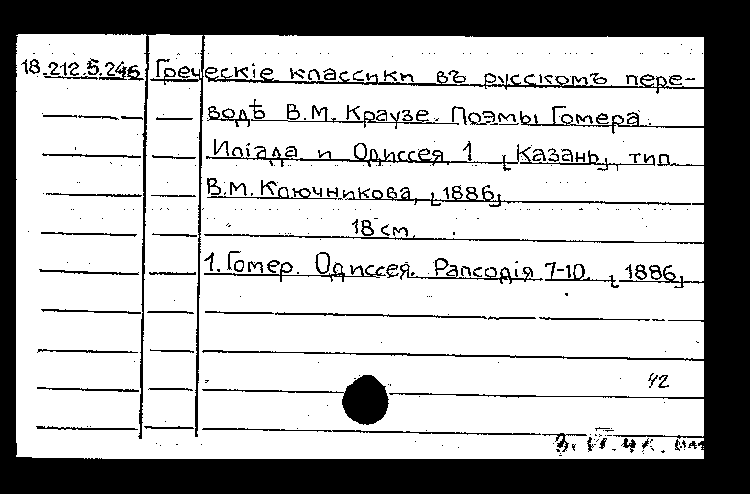 18.212.5.246 Греческіе классики въ русскомъ пере-
водѣ В.М. Краузе. Поэмы Гомера.
Иліада и Одиссея 1 [Казань], тип.
В.М. Ключникова, [1886]
18 см.
1. Гомер. Одиссея. Рапсодія 7-10. [1886]
42